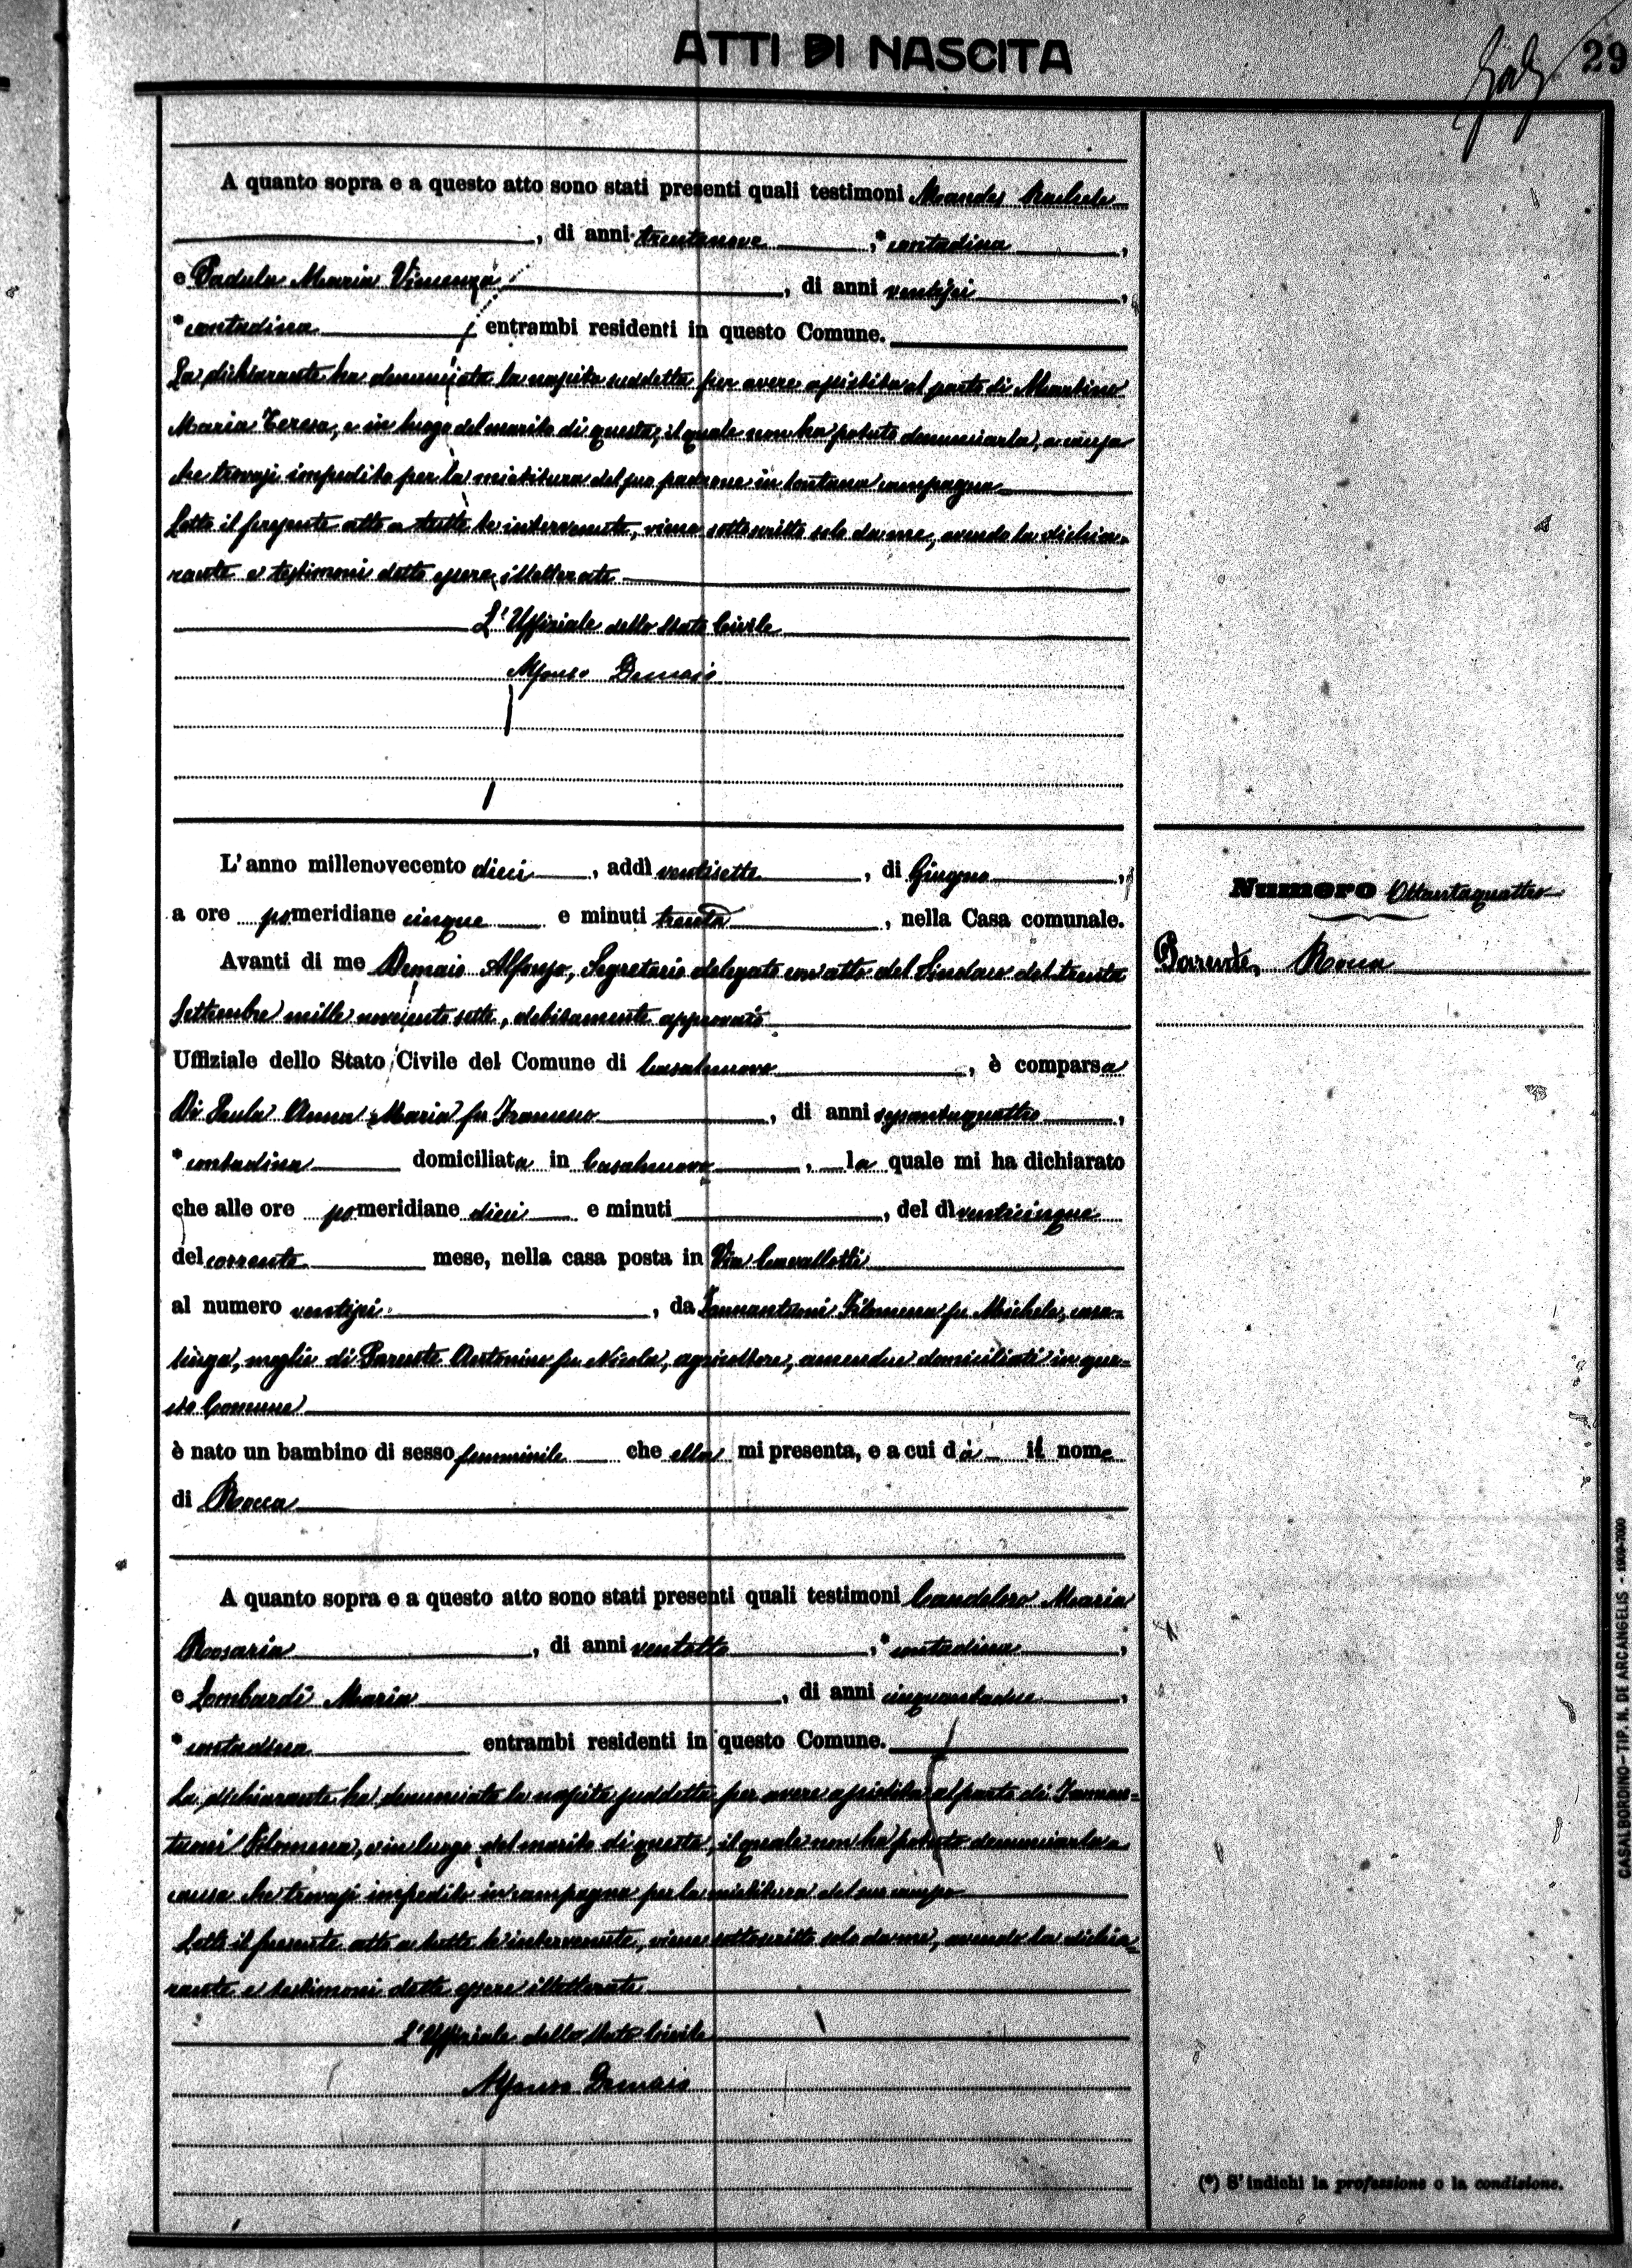 ATTI DI NASCITA
29
A quanto sopra e a questo atto sono stati presenti quali testimoni Mandes Rachele
, di anni trentanove , * contadina ,
e Padula Maria Vincenza , di anni ventisei ,
* contadina , entrambi residenti in questo Comune.
La dichiarante ha denunciata la nascita suddetta per avere assistito al parto di Martino
Maria Teresa, e in luogo del marito di questa, il quale non ha potuto denunciarla, a causa
che trovasi impedito per la mietitura del suo padrone in lontana campagna
Letto il presente atto a tutte le intervenute, viene sottoscritto solo da me, avendo la dichia-
rante e testimoni detto essere illetterate
L'Uffiziale dello Stato Civile
Alfonso Demaio
L'anno millenovecento dieci , addì ventisette , di Giugno ,
a ore pomeridiane cinque e minuti trenta , nella Casa comunale.
Avanti di me Demaio Alfonso, Segretario delegato con atto del Sindaco del trenta
Settembre mille novecento sette, debitamente approvato
Uffiziale dello Stato Civile del Comune di Casalnuovo , è comparsa
Di Paula Anna Maria fu Francesco , di anni sessantaquattro ,
* contadina domiciliata in Casalnuovo , la quale mi ha dichiarato
che alle ore pomeridiane dieci e minuti , del dì venticinque
del corrente mese, nella casa posta in Via
al numero ventisei , da Iannantuoni Filomena fu Michele, casa-
linga, moglie di Parente Antonino fu Nicola, agricoltore, amendue domiciliati in que-
sto Comune
è nato un bambino di sesso femminile che ella mi presenta, e a cui dà il nome
di Rocca
A quanto sopra e a questo atto sono stati presenti quali testimoni Candeloro Maria
Rosaria , di anni ventotto , * contadina ,
e Lombardi Maria , di anni cinquantadue ,
* contadina entrambi residenti in questo Comune.
La dichiarante ha denunciata la nascita suddetta per avere assistito al parto di Iannan-
tuoni Filomena, e in luogo del marito di questa, il quale non ha potuto denunciarla a
causa che trovasi impedito in campagna per la mietitura del suo campo
Letto il presente atto a tutte le intervenute, viene sottoscritto solo da me, avendo la dichia-
rante e testimoni detto essere illetterate
L'Uffiziale dello Stato Civile
Alfonso Demaio
Numero Ottantaquattro
Parente, Rocca
(*) S'indichi la professione o la condizione.
CASALBORDINO - TIP. N. DE ARCANGELIS - 1909-7000